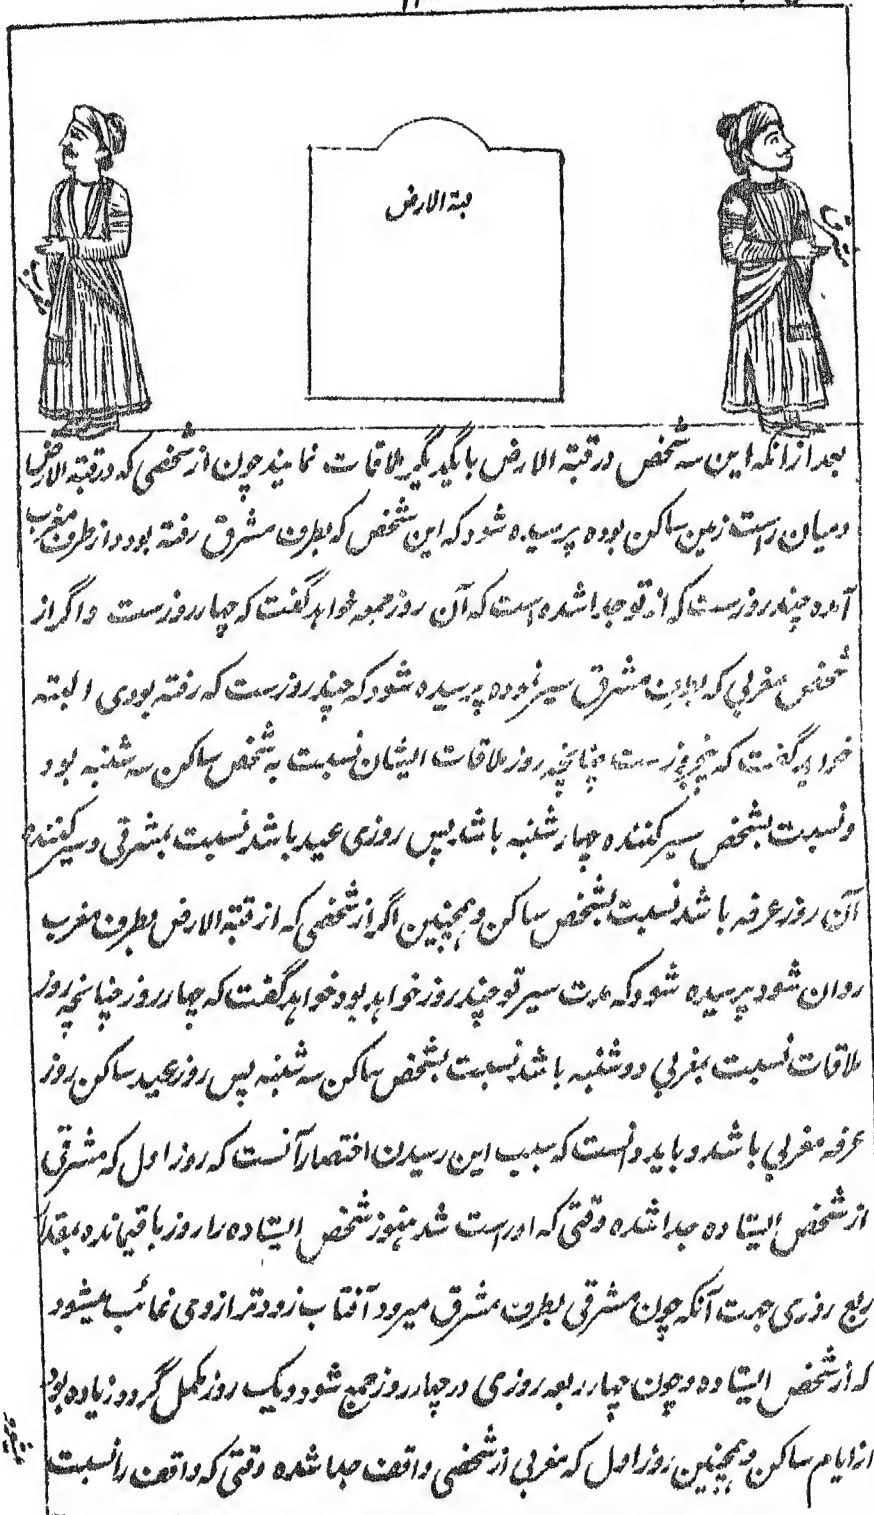 قبة الارض
مشرقی
مغربی
بعد ازانکه این سه شخص در قبة الارض بایکدیگر ملاقات نمایند چون از شخصی که در قبة الارض
و میان راست زمین ساکن بوده پرسیده شود که این شخص که بطرف مشرق رفته بود و از طرف مغرب
آمده چند روزست که از تو جدا شده است که آن روز جمعه خواهد گفت که چهار روزست و اگر از
شخص مغربی که بجانب مشرق سیر نموده پرسیده شود که چند روزست که رفته بودی البته
خواهد گفت که پنجروزست چنانچه روز ملاقات ایشان نسبت به شخص ساکن سه شنبه بود
و نسبت بشخص سیر کننده چهار شنبه باشد پس روزی عید باشد نسبت بمشرقی و سیر کننده
آن روز عرفه باشد نسبت بشخص ساکن و همچنین اگر از شخصی که از قبة الارض بطرف مغرب
روان شود پرسیده شود که مدت سیر تو چند روز خواهد بود خواهد گفت که چهار روز چنانچه روز
ملاقات نسبت بمغربی دوشنبه باشد نسبت بشخص ساکن سه شنبه پس روز عید ساکن روز
عرفه مغربی باشد و باید دانست که سبب این رسیدن اختصارا آنست که روز اول که مشرقی
از شخص ایستاده جدا شده وقتی که او راست شد هنوز شخص ایستاده را روز باقیمانده بقدر
ربع روزی جهت آنکه چون مشرقی بطرف مشرق میرود آفتاب زودتر ازو می غائب میشود
که از شخص ایستاده و چون چهار ربعه روزی در چهار روز جمع شود و یک روز مکمل گردد و زیاده بود
از ایام ساکن و همچنین روز اول که مغربی از شخصی واقف جدا شده وقتی که واقف را نسبت